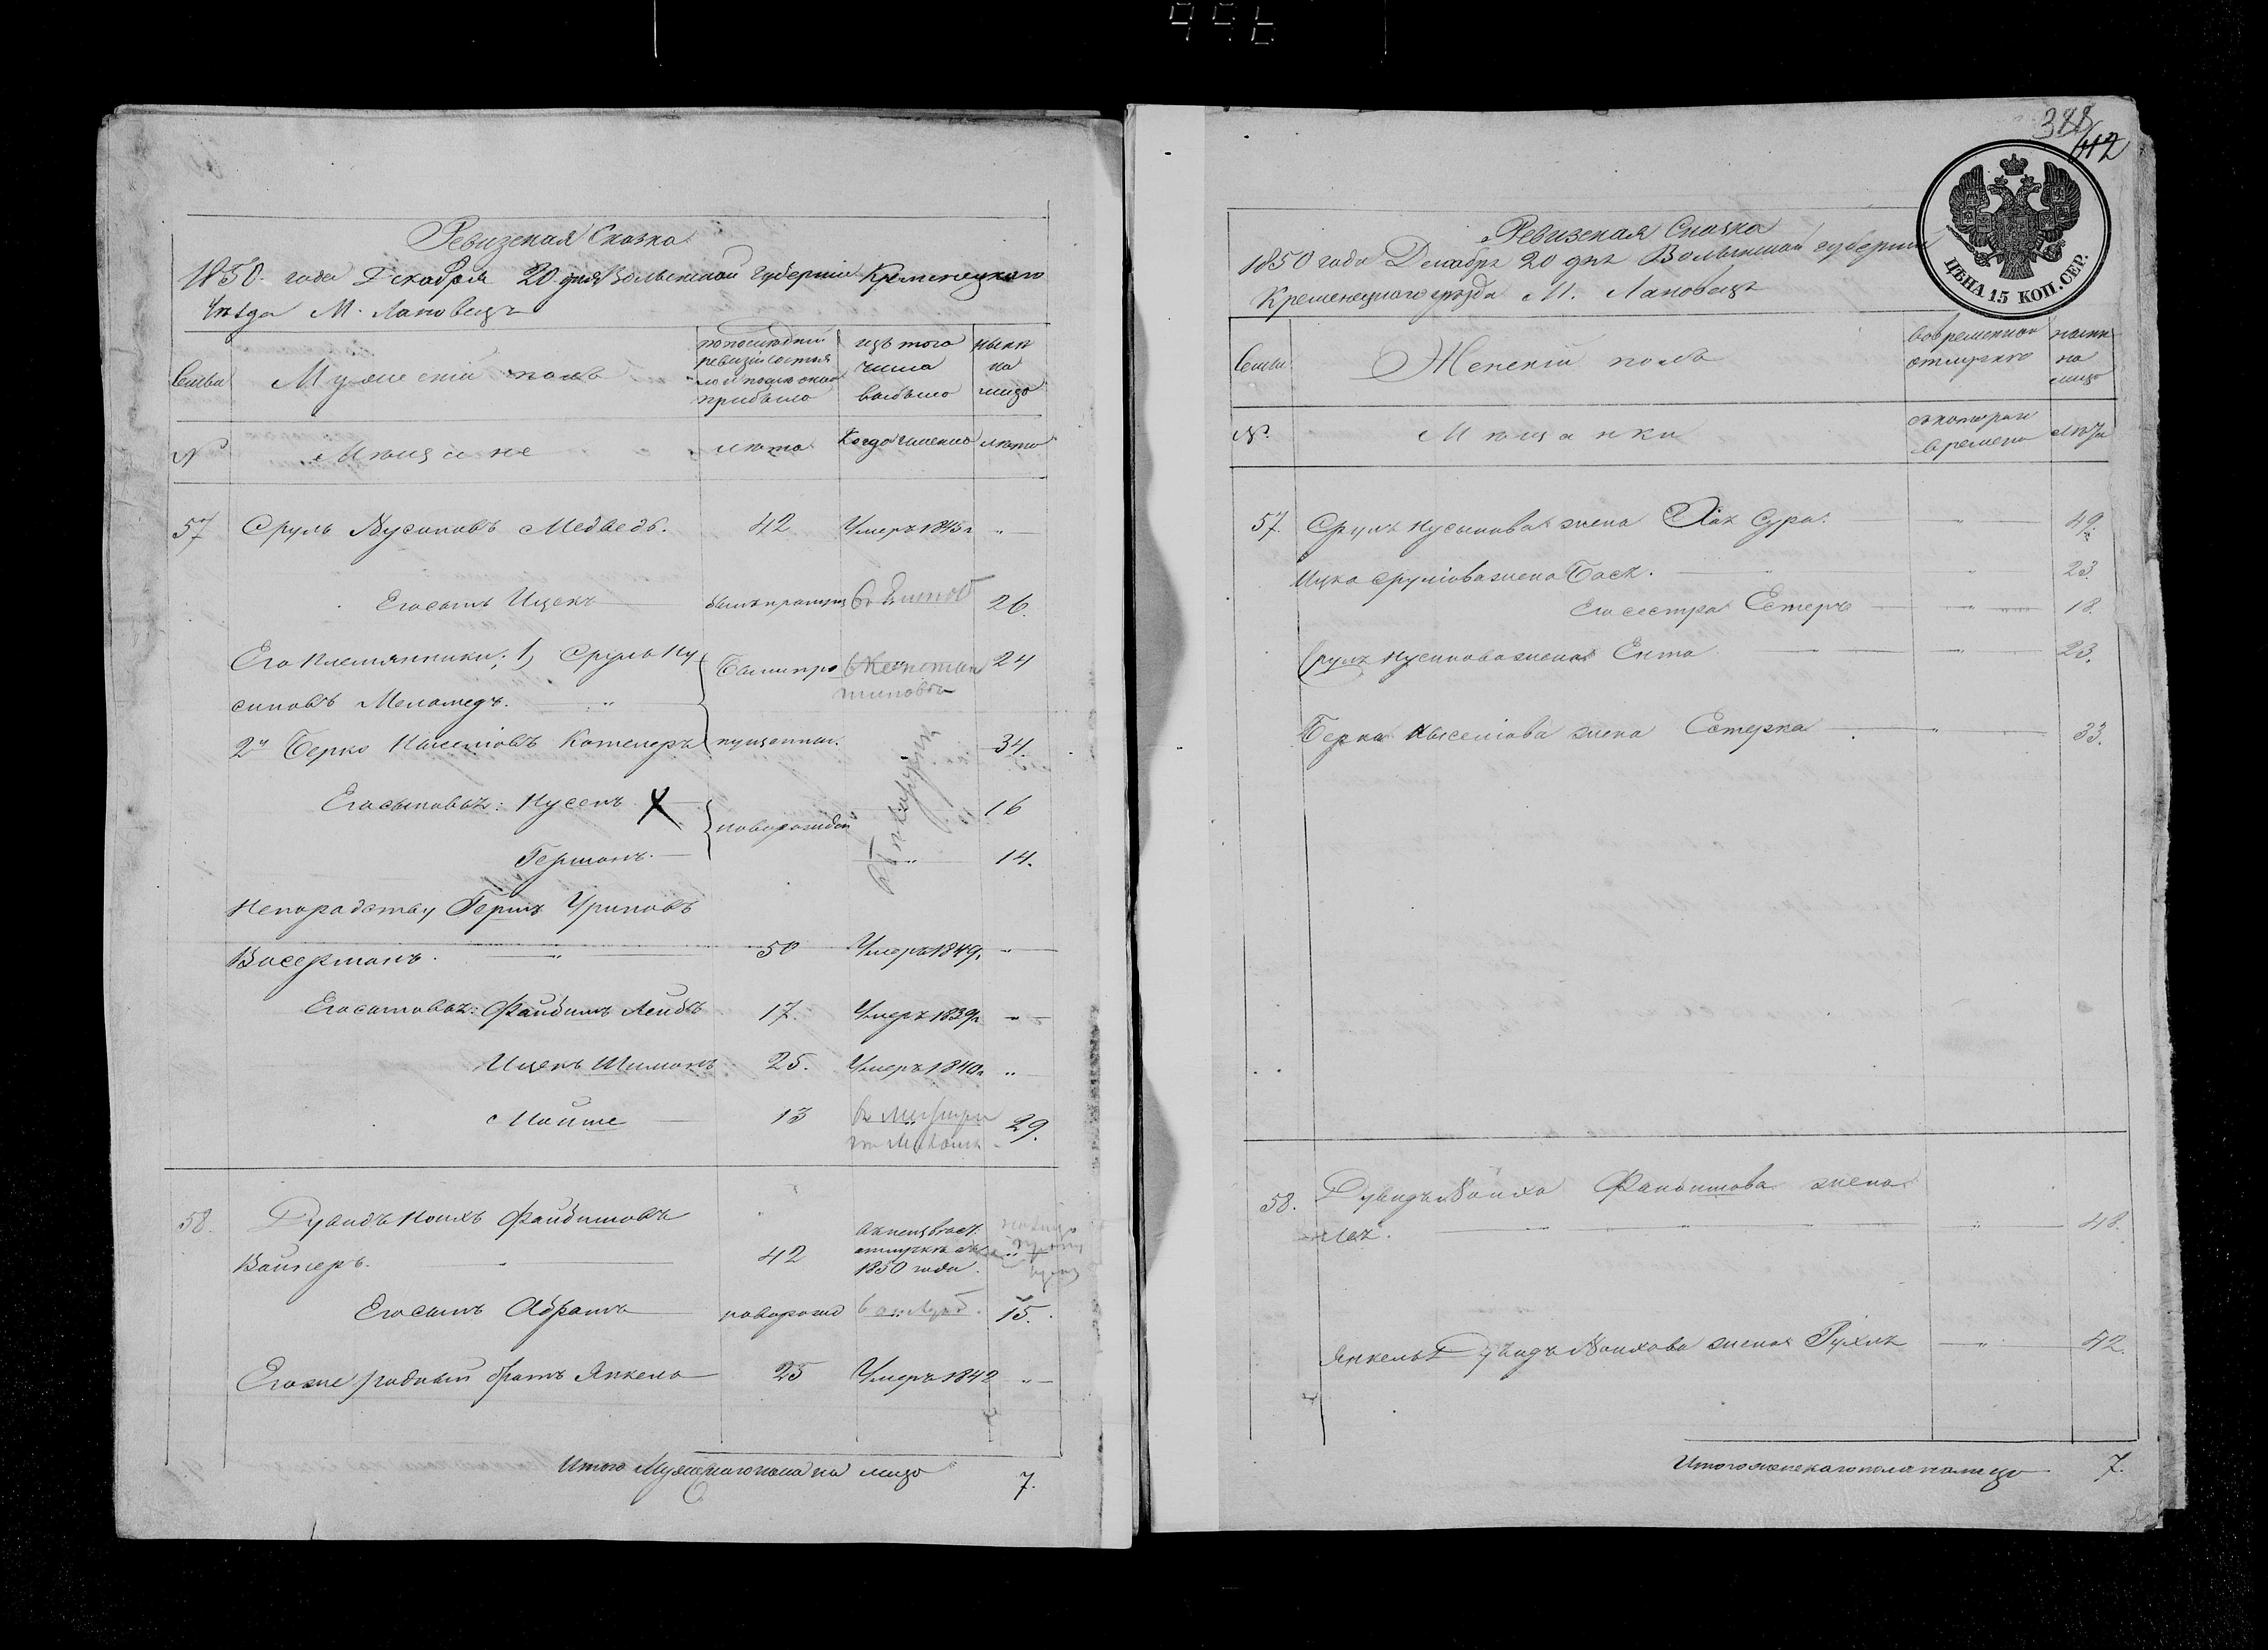 Ревизская Сказка
1850. года Декабря 20 дня Волынской Губернии Кременецкаго
Уезда М. Лановецъ
Семьи
Мужеский полъ
по последней ревизіи состояло и после оной прибыло
изъ того числа выбыло
ныне на лицо
№
Мещане
лета
Когда именно
лета
57 Сруль Нусиновъ Медведь. 42 Умеръ 1845 г. "
Его сынъ Ицекъ былъ пропущ 26.
Его племянники: 1, Сруль Ну
синовъ Меламедъ. " Были про 24
2й Берко Киселіовъ Котлеръ пущенная. 34.
Его сыновья: Нусенъ X 16
новорожден
Гершонъ. " 14.
Непородству Гершъ Уриновъ
Васерманъ. " 50 Умеръ 1849 г. "
Его сыновья: Файбишъ Лейбъ 17. Умеръ 1839 г. "
Ицекъ Шимонъ 25. Умеръ 1840 г. "
Мойше 13 29.
58. Дувидъ Ноихъ Файбишовъ
Вайнеръ. 42 отлучке съ
1850 года.
Его сынъ Абрамъ новорожд 15.
Его же родный братъ Янкель 25 Умеръ 1842 "
Итого Мужескаго пола на лицо 7.
388
412
Ревизская Сказка
1850 года Декабря 20 дня Волынской губернии
Кременецкаго уезда М. Лановецъ
ЦѢНА 15 КОП. СЕР.
Семьи
Женскій полъ
во временной отлучке
ныне на лицо
№.
Мещанки
съ котораго времени
лета
57. Сруля Нусинова жена Хая Сура. " 49.
Ицка Срулiова жена Бася. " 23.
Его сестра Естеръ " 18.
Сруля Нусинова жена Ента " 23.
Берка Киселіова жена Естерка " 33.
58. Дувидъ Ноиха Файбишова жена
Лея. " 48.
Янкель Дувидъ Ноихова жена Рухля " 42.
Итого женскаго пола на лицо 7.